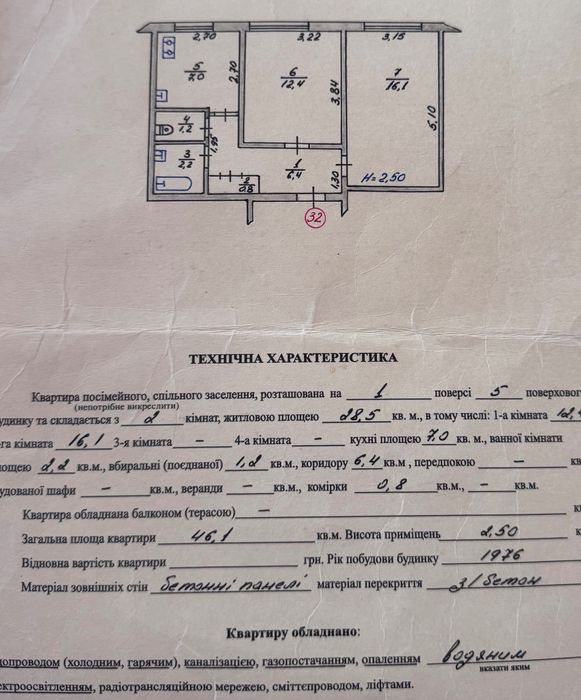 2,70
3,22
3,15
5
7.0
2,70
6
12,4
3,84
7
16,1
5,10
4
1.2
1,95
3
2,2
1
6,4
1,30
2
0.8
H=2,50
32
ТЕХНІЧНА ХАРАКТЕРИСТИКА
Квартира посімейного, спільного заселення, розташована на 1 поверсі 5 поверхового
(непотрібне викреслити)
удинку та складається з 2 кімнат, житловою площею 28,5 кв. м., в тому числі: 1-а кімната 12,4
га кімната 16,1 3-я кімната – 4-а кімната – кухні площею 7.0 кв. м., ванної кімнати
лощею 2,2 кв.м., вбиральні (поєднаної) 1,2 кв.м., коридору 6,4 кв.м , передпокою – кв
удованої шафи – кв.м., веранди – кв.м., комірки 0,8 кв.м., – кв.м.
Квартира обладнана балконом (терасою) –
Загальна площа квартири 46,1 кв.м. Висота приміщень 2,50
Відновна вартість квартири грн. Рік побудови будинку 1976
Матеріал зовнішніх стін бетонні панелі матеріал перекриття з/бетон
Квартиру обладнано:
допроводом (холодним, гарячим), каналізацією, газопостачанням, опаленням водяним
вказати яким
ектроосвітленням, радіотрансляційною мережею, сміттєпроводом, ліфтами.